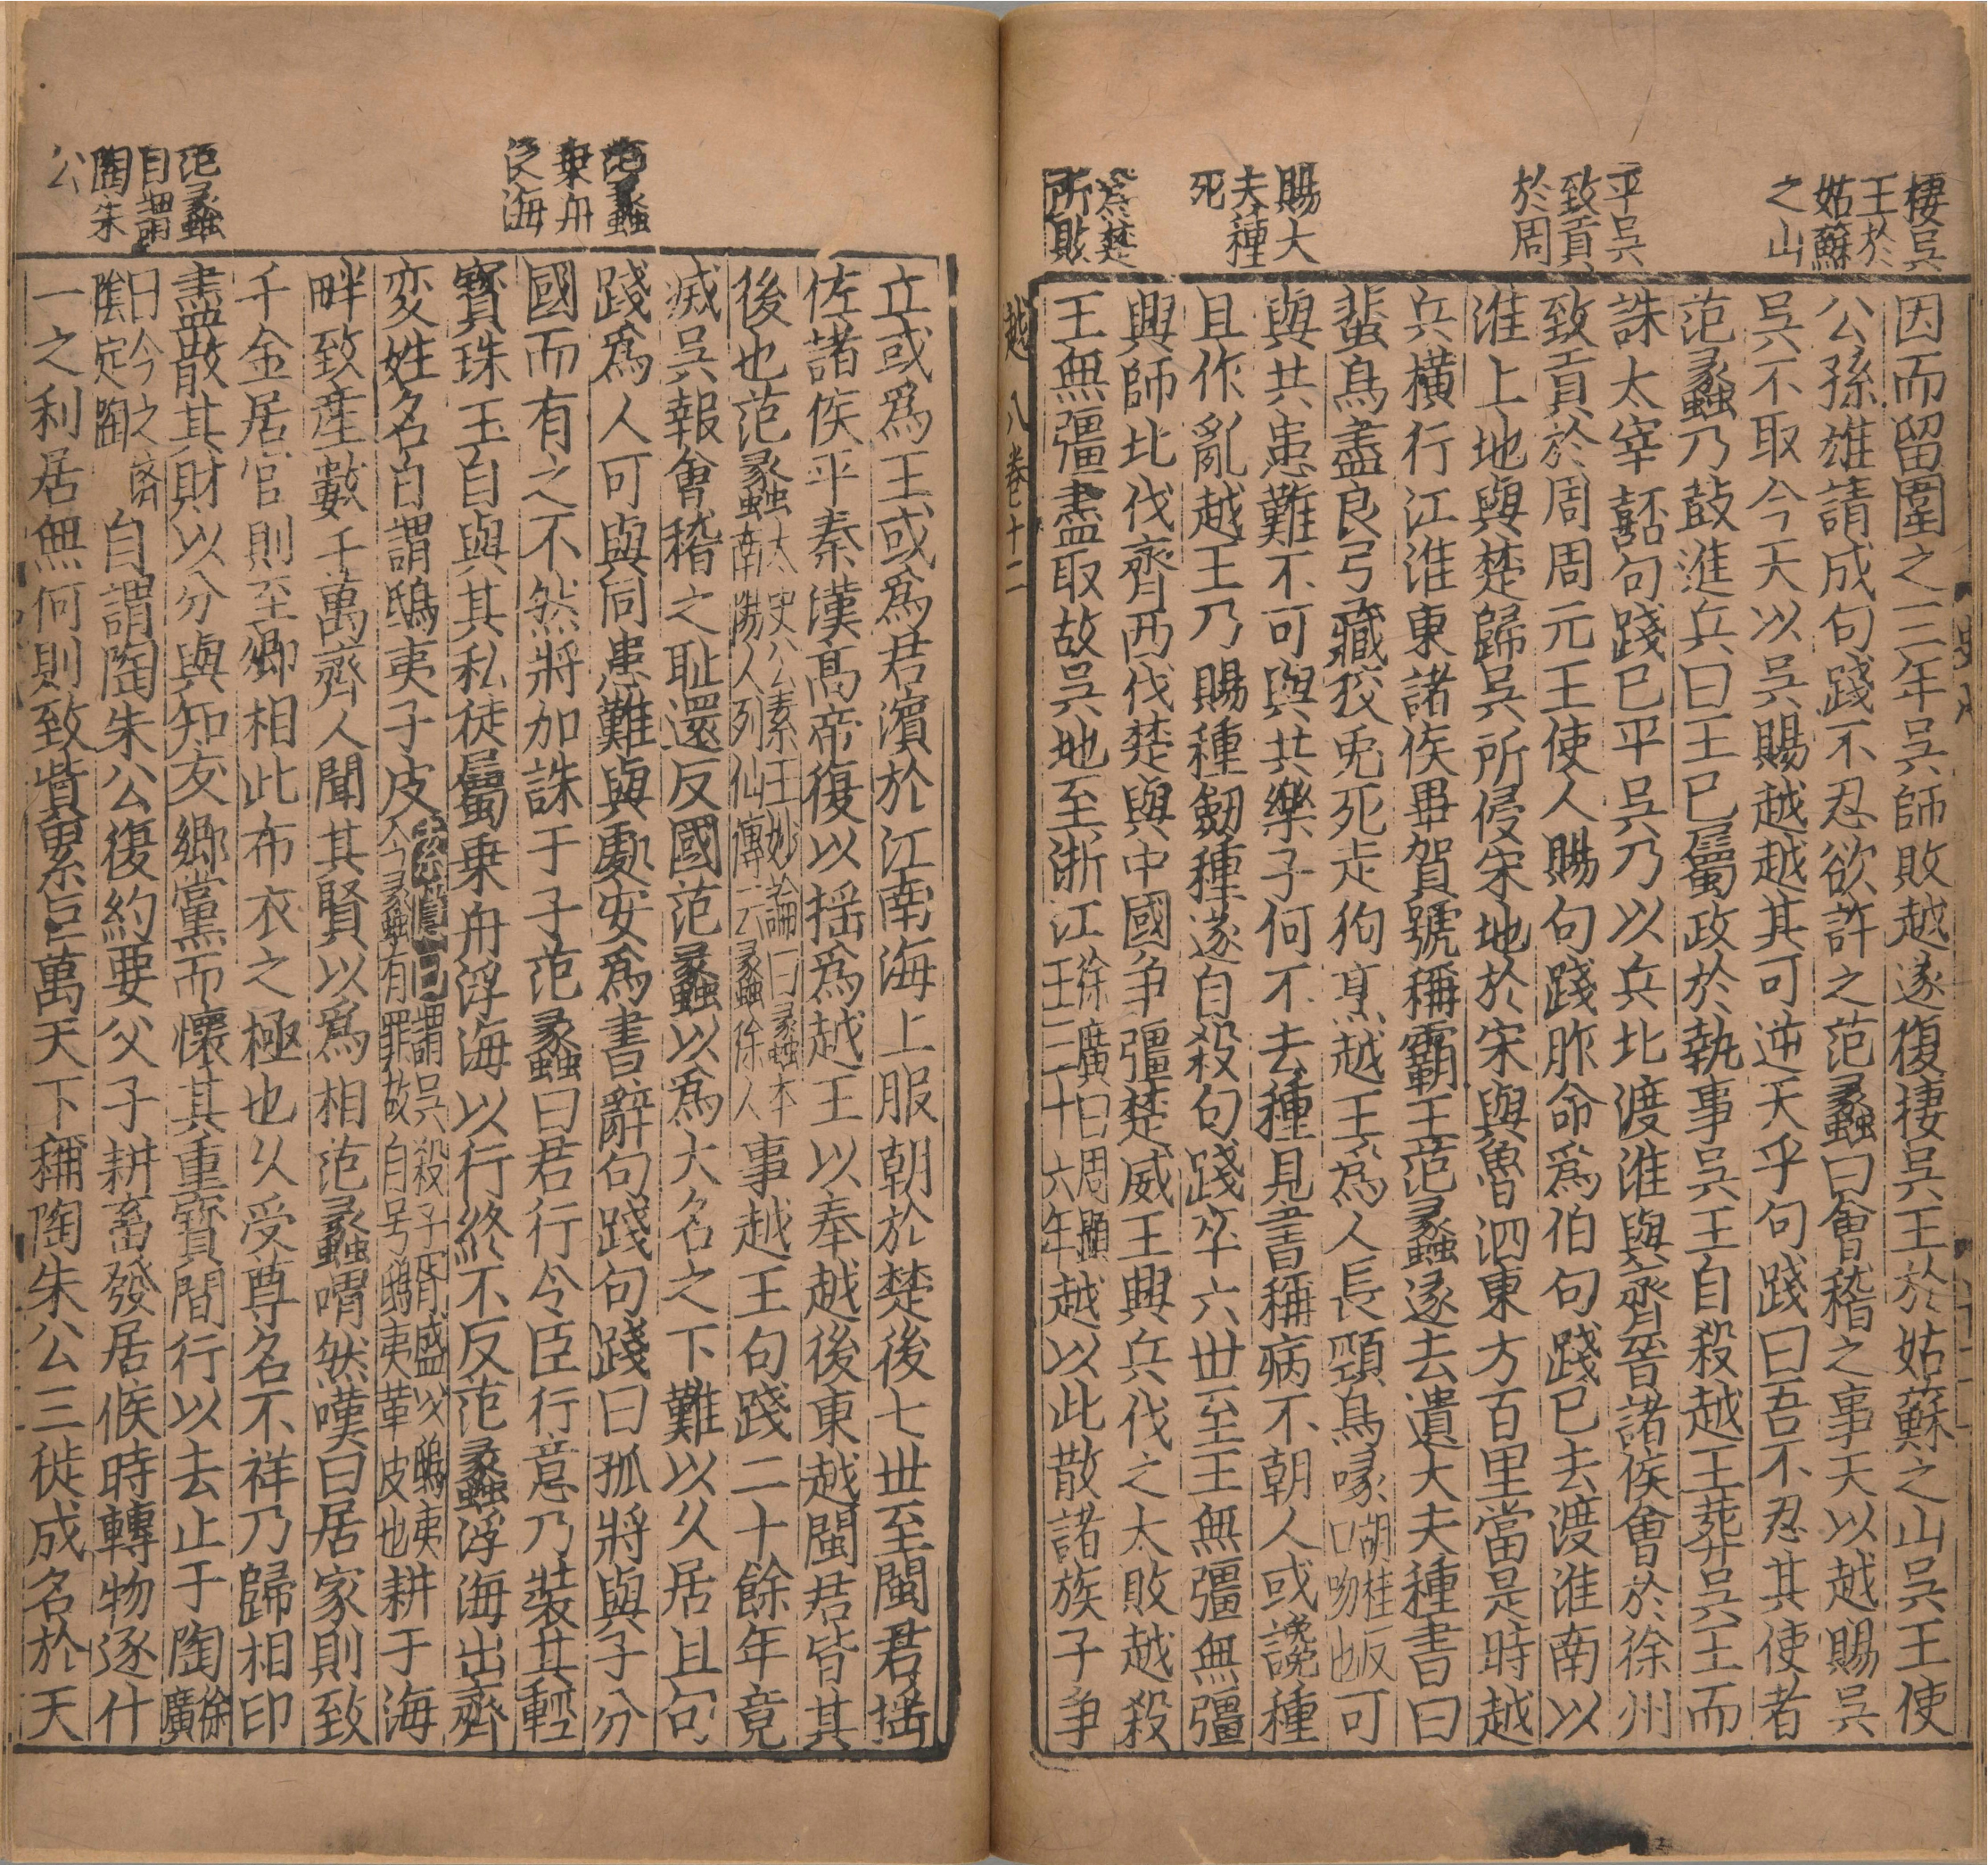 棲吳
王於
姑蘇
之山
平吳
致貢
於周
賜大
夫種
死
為楚
所敗
因而留圍之三年吳師敗越遂復棲吳王於姑蘇之山吳王使
公孫雄請成句踐不忍欲許之范蠡曰會稽之事天以越賜吳
吳不取今天以吳賜越越其可逆天乎句踐曰吾不忍其使者
范蠡乃鼓進兵曰王已屬政於執事吳王自殺越王葬吳王而
誅太宰嚭句踐已平吳乃以兵北渡淮與齊晉諸侯會於徐州
致貢於周周元王使人賜句踐胙命爲伯句踐已去渡淮南以
淮上地與楚歸吳所侵宋地於宋與魯泗東方百里當是時越
兵橫行江淮東諸侯畢賀號稱霸王范蠡遂去遺大夫種書曰
蜚鳥盡良弓藏狡兎死走狗烹越王爲人長頸鳥喙胡桂反口吻也可
與共患難不可與共樂子何不去種見書稱病不朝人或讒種
且作亂越王乃賜種劒種遂自殺句踐卒六世至王無彊無彊
興師北伐齊西伐楚與中國爭彊楚威王興兵伐之大敗越殺
王無彊盡取故吳地至浙江徐廣曰周顯王三十六年越以此散諸族子爭
越八 卷十二
范蠡
乗舟
泛海
范蠡
自謂
陶朱
公
立或爲王或爲君濱於江南海上服朝於楚後七世至閩君揺
佐諸侯平秦漢髙帝復以揺爲越王以奉越後東越閩君皆其
後也范蠡太史公素王妙論曰蠡本南陽人列仙傳云蠡徐人事越王句踐二十餘年竟
滅吳報會稽之恥還反國范蠡以爲大名之下難以久居且句
踐爲人可與同患難與處安爲書辭句踐句踐曰孤將與子分
國而有之不然將加誅于子范蠡曰君行令臣行意乃裝其輕
寳珠玉自與其私徒屬乗舟浮海以行終不反范蠡浮海出齊
变姓名自謂鴟夷子皮索隱曰謂吳殺子胥盛以鴟夷今蠡有罪故自号鴟夷革皮也耕于海
畔致産數千萬齊人聞其賢以爲相范蠡喟然嘆曰居家則致
千金居官則至卿相此布衣之極也久受尊名不祥乃歸相印
盡散其財以分與知友郷黨而懷其重寳間行以去止于陶徐廣
曰今之濟陰定陶自謂陶朱公復約要父子耕畜發居候時轉物逐什
一之利居無何則致貲累巨萬天下稱陶朱公三徙成名於天